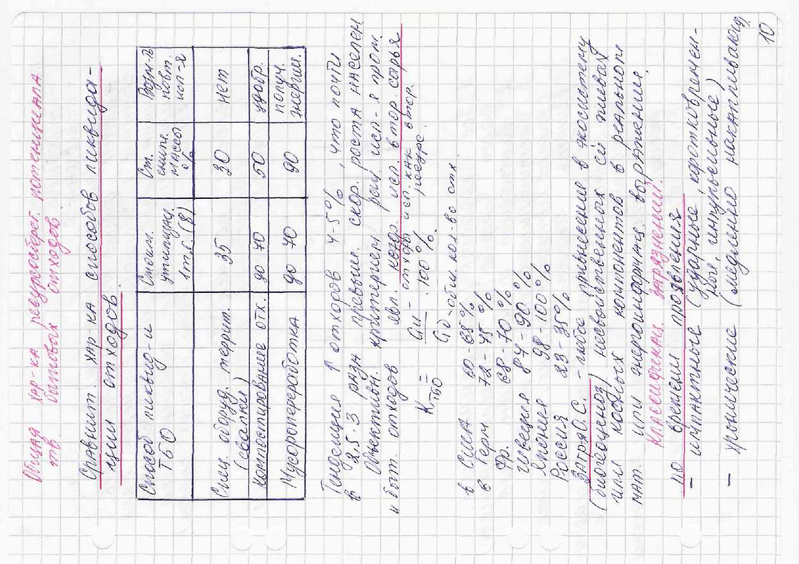 10
Общая хар-ка ресурсосберег. потенциала
тв. бытовых отходов.
Сравнит. хар-ка способов ликвида-
ции отходов.
Способ ликвид-и ТБО | Стоим. утилизации 1т.с. ($) | Ст. сниж. массы % | Возм-ть повт. исп-я
Спец. оборуд. террит. (свалки) | 35 | 30 | нет
Компостирование отх. | до 70 | 50 | удобр.
Мусоропереработка | до 70 | 90 | получ. энергии
Тенденция ↑ отходов 4-5%, что почти
в 2,5-3 раза превыш. скор. роста населен.
Объективн. критерием рец. исп-я пром.
и быт. отходов явл. коэф. исп. втор. сырья
K ТБО = Gи / Gо · 100%
Gи - отходы исп. как втор. ресурс.
Gо - общ. кол-во отх.
в США 60-65%
в Герм 72-75%
Фр. 68-70%
Швеция 87-90%
Япония 98-100%
Россия 23-35%
Загряз. О.С. - любое привнесение в экосистему
(биогеоценоз) несвойственных ей живых
или косных компонентов в реальном
мат. или энергоинформ. выражении.
Классификац. загрязнений:
по времени проявления
- импактные (ударные, кратковремен-
ной, импульсивные)
- хронические (медленно накапливающ.)